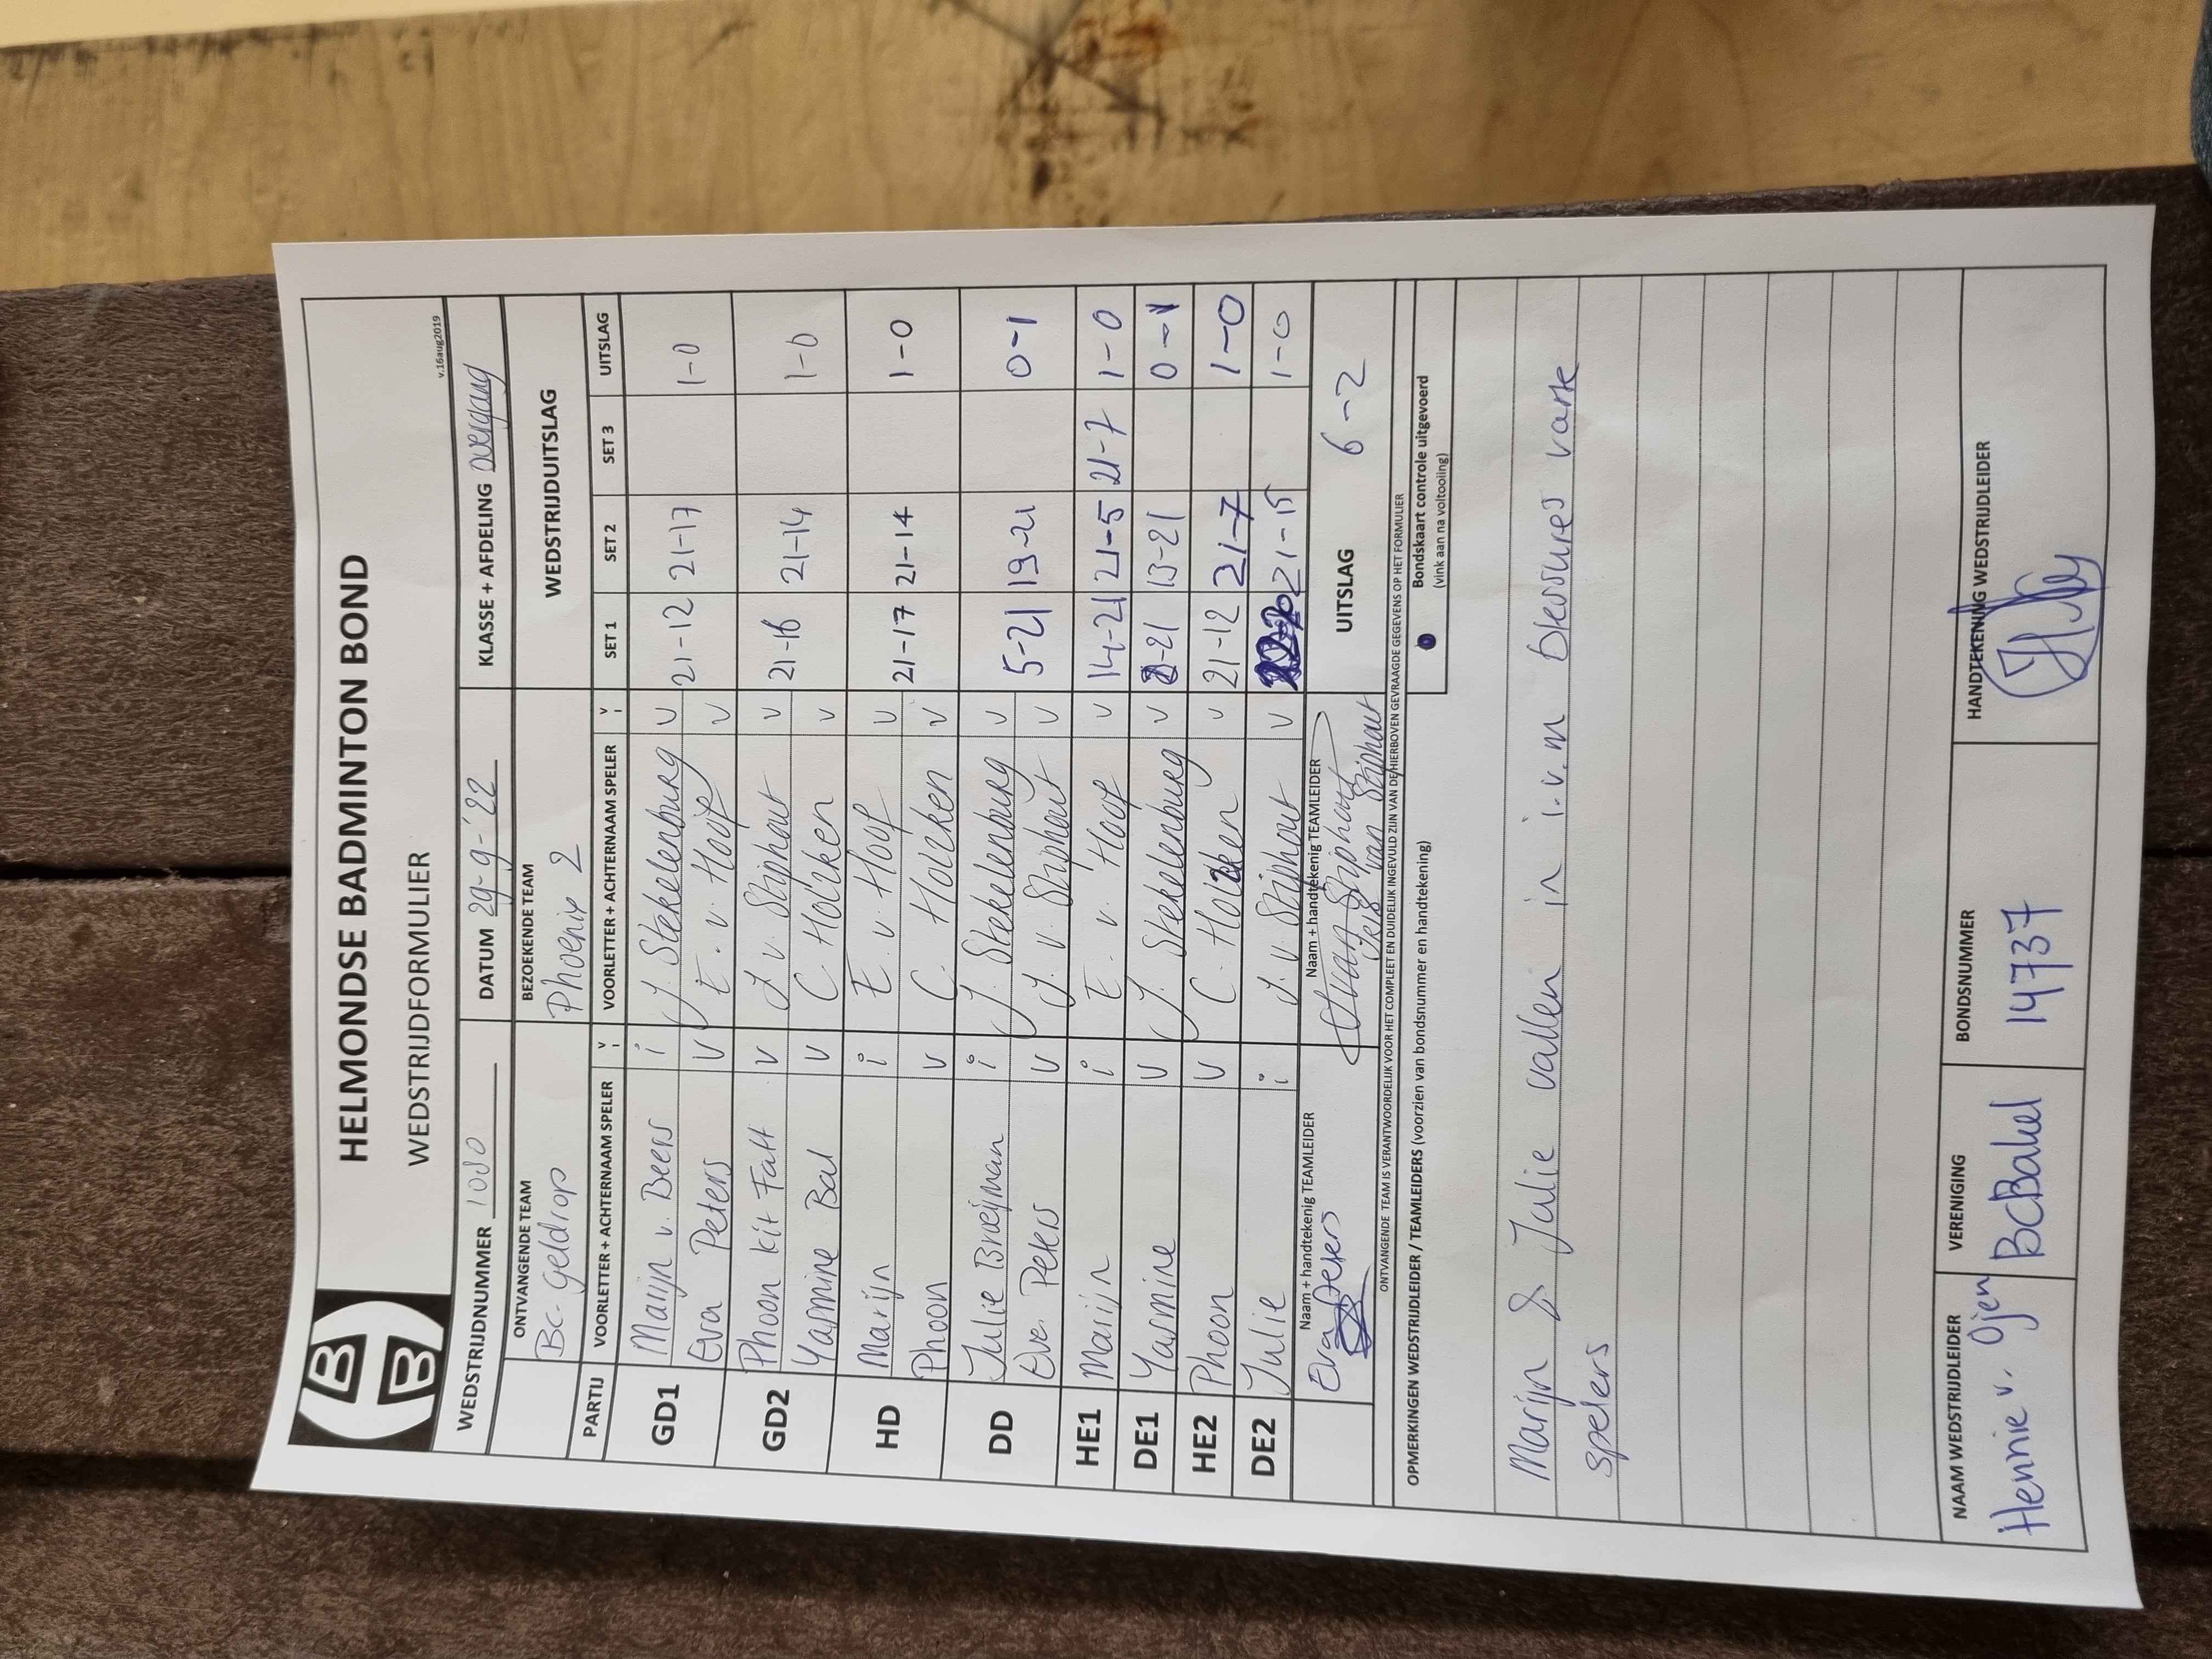 HBB
HELMONDSE BADMINTON BOND
WEDSTRIJDFORMULIER
v.16aug2019
WEDSTRIJDNUMMER DATUM 29-9-'22 KLASSE + AFDELING overgang
ONTVANGENDE TEAM BEZOEKENDE TEAM WEDSTRIJDUITSLAG
BC-geldrop Phoenix 2
PARTIJ VOORLETTER + ACHTERNAAM SPELER V i VOORLETTER + ACHTERNAAM SPELER V i SET 1 SET 2 SET 3 UITSLAG
GD1 Marijn v. Beers i J. Stekelenburg V 21-12 21-17 1-0
Eva Peters V E. v. Hoof V
GD2 Phoon kit Fatt V J. v. Stiphout V 21-16 21-14 1-0
Yasmine Bal V C. Holzken V
HD Marijn i E. v. Hoof V 21-17 21-14 1-0
Phoon V C. Holzken V
DD Julie Broeijman i J. Stekelenburg V 5-21 19-21 0-1
Eva. Peters V J. v. Stiphout V
HE1 Marijn i E. v. Hoof V 14-21 21-5 21-7 1-0
DE1 Yasmine V J. Stekelenburg V -21 13-21 0-1
HE2 Phoon V C. Holzken V 21-12 21-7 1-0
DE2 Julie i J. v. Stiphout V 21-15 1-0
Naam + handtekenig TEAMLEIDER Naam + handtekenig TEAMLEIDER UITSLAG 6-2
Eva Peters van Stiphout
ONTVANGENDE TEAM IS VERANTWOORDELIJK VOOR HET COMPLEET EN DUIDELIJK INGEVULD ZIJN VAN DE HIERBOVEN GEVRAAGDE GEGEVENS OP HET FORMULIER
OPMERKINGEN WEDSTRIJDLEIDER / TEAMLEIDERS (voorzien van bondsnummer en handtekening)
Bondskaart controle uitgevoerd
(vink aan na voltooiing)
Marijn & Julie vallen in i.v.m blessures vaste
spelers
NAAM WEDSTRIJDLEIDER VERENIGING BONDSNUMMER HANDTEKENING WEDSTRIJDLEIDER
Hennie v. Ojen BCBakel 14737